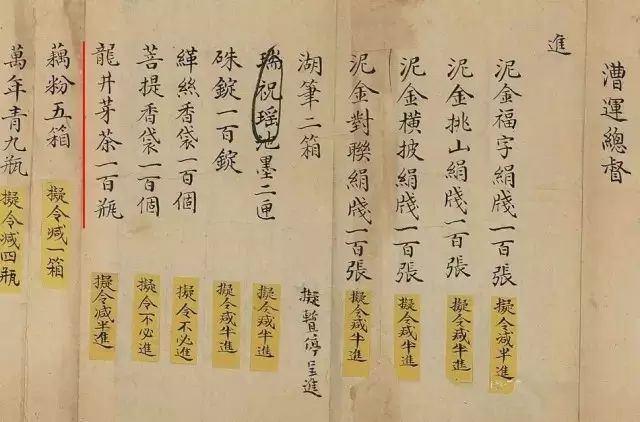 漕運總督
進
泥金福字絹牋一百張
擬令減半進
泥金挑山絹牋一百張
擬令減半進
泥金橫披絹牋一百張
擬令減半進
泥金對聯絹牋一百張
擬令減半進
湖筆二箱
擬暫停呈進
瑞祝瑶池墨二匣
擬令減半進
硃錠一百錠
擬令減半進
緙絲香袋一百個
擬令不必進
菩提香袋一百個
擬令不必進
龍井芽茶一百瓶
擬令減半進
藕粉五箱
擬令減一箱
萬年青九瓶
擬令減四瓶